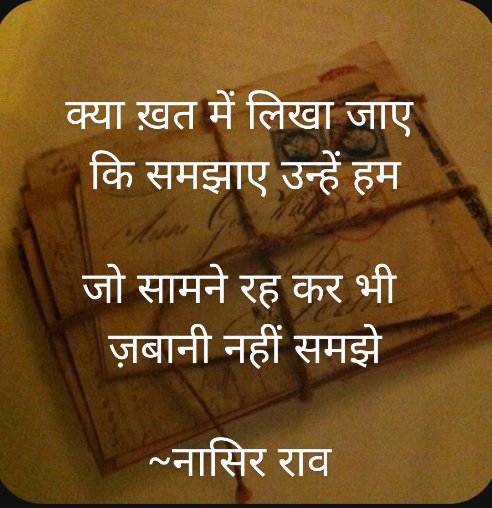 क्या ख़त में लिखा जाए
कि समझाए उन्हें हम
जो सामने रह कर भी
ज़बानी नहीं समझे
~नासिर राव